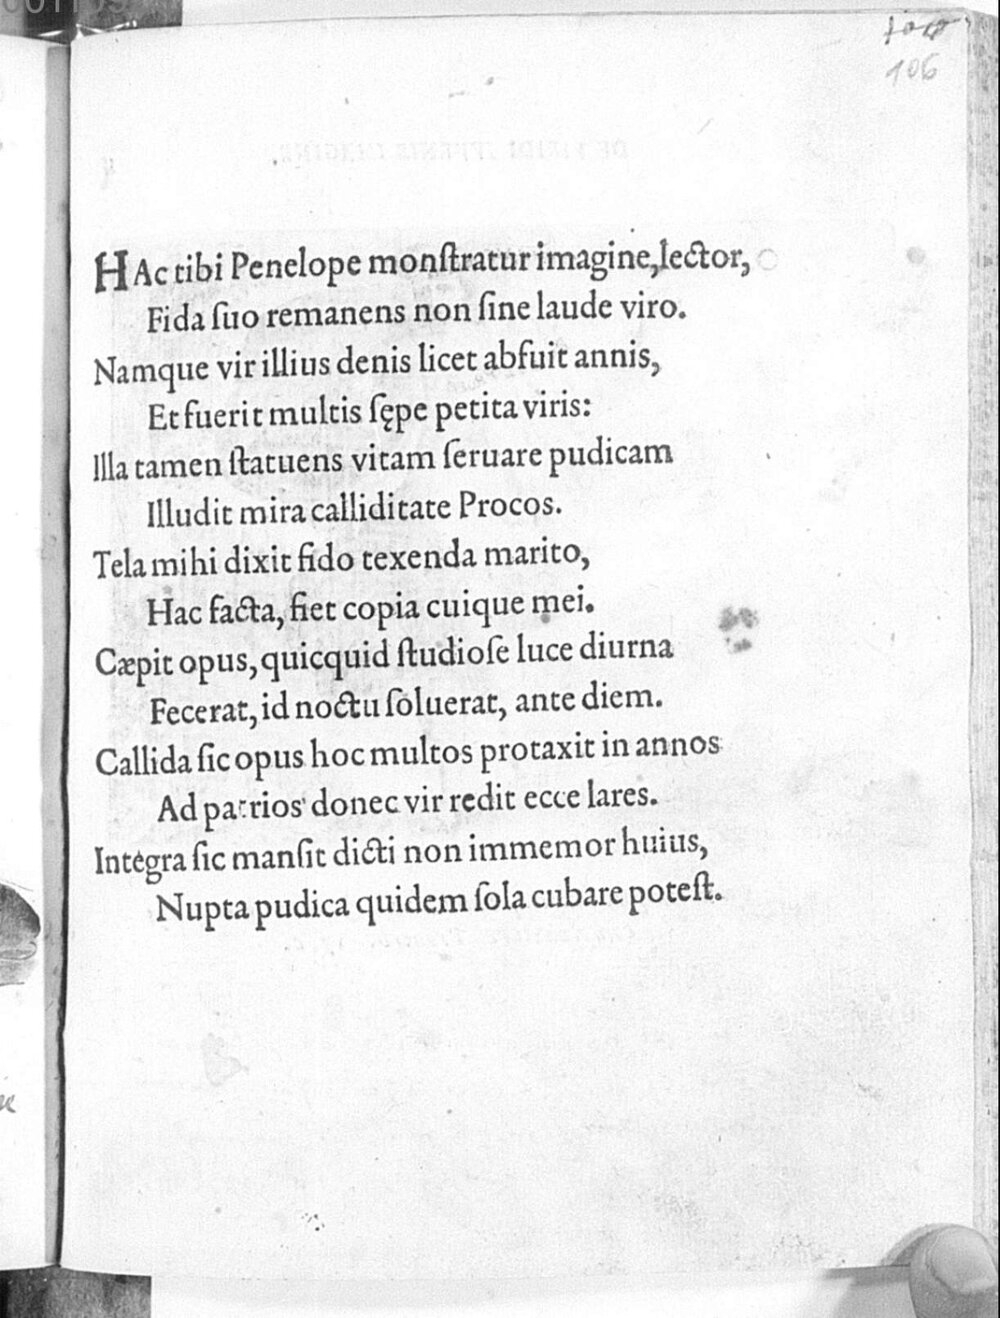 106
HAc tibi Penelope monſtratur imagine, lector,
Fida ſuo remanens non ſine laude viro.
Namque vir illius denis licet abfuit annis,
Et fuerit multis ſępe petita viris:
Illa tamen ſtatuens vitam ſeruare pudicam
Illudit mira calliditate Procos.
Tela mihi dixit fido texenda marito,
Hac facta, fiet copia cuique mei.
Cæpit opus, quicquid ſtudioſe luce diurna
Fecerat, id noctu ſoluerat, ante diem.
Callida ſic opus hoc multos protaxit in annos
Ad patrios donec vir redit ecce lares.
Integra ſic manſit dicti non immemor huius,
Nupta pudica quidem ſola cubare poteſt.